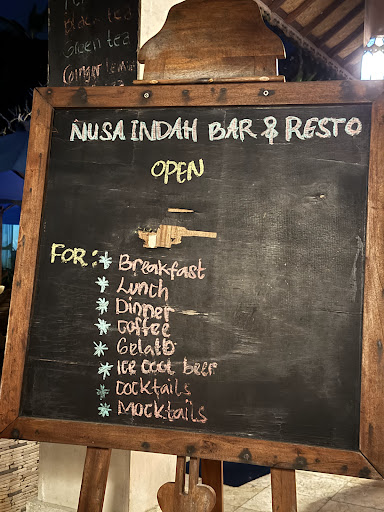 Black tea
Green tea
Ginger lemon
NUSA INDAH BAR & RESTO
OPEN
FOR: * Breakfast
* Lunch
* Dinner
* Coffee
* Gelato
* Ice cool beer
* Cocktails
* Mocktails